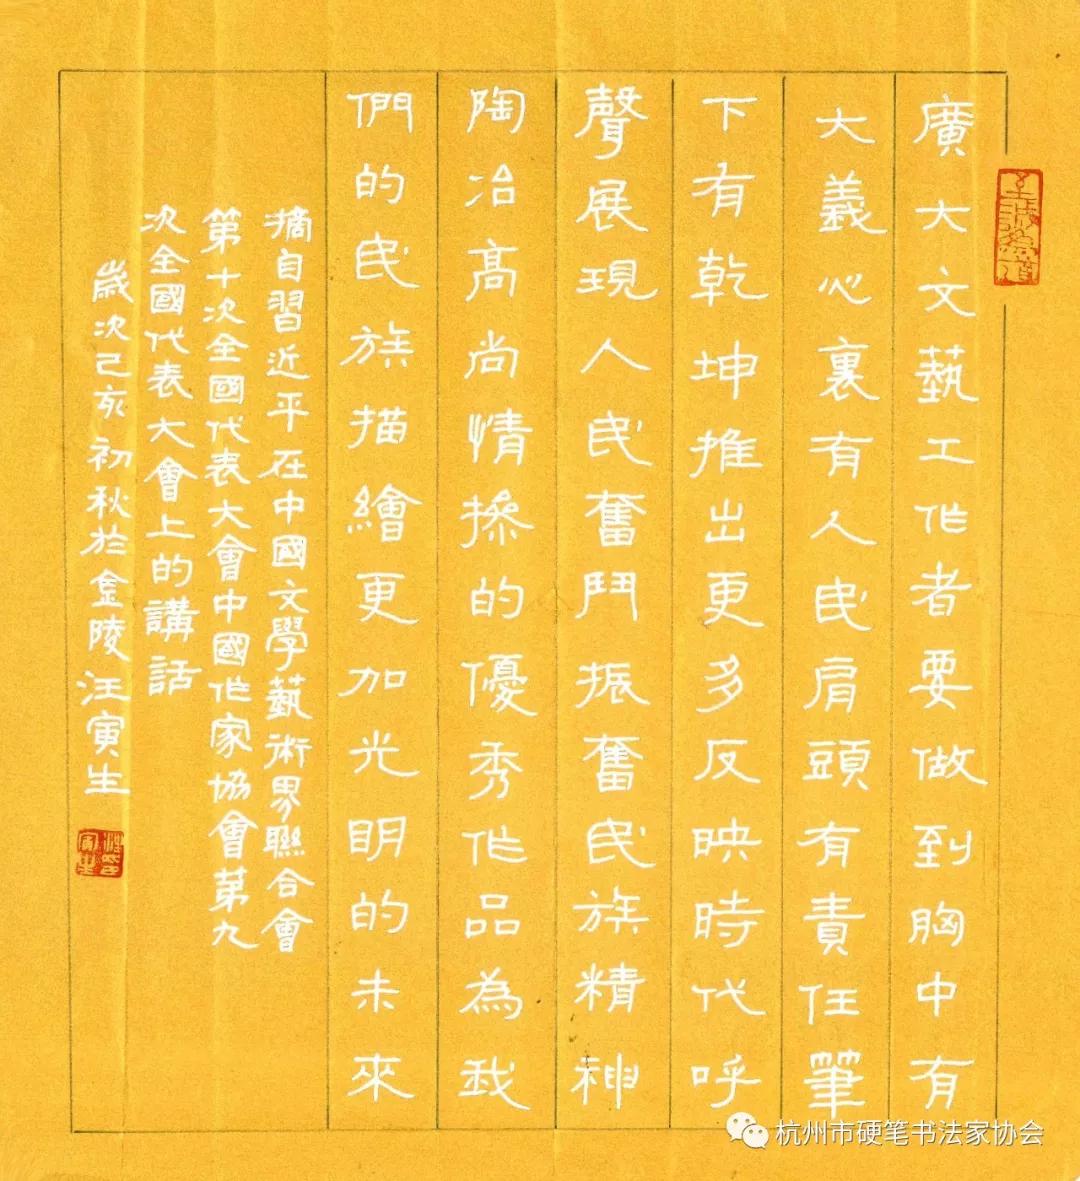 廣大文藝工作者要做到胸中有
大義心裏有人民肩頭有責任筆
下有乾坤推出更多反映時代呼
聲展現人民奮鬥振奮民族精神
陶冶高尚情操的優秀作品為我
們的民族描繪更加光明的未來
摘自習近平在中國文學藝術界聯合會
第十次全國代表大會中國作家協會第九
次全國代表大會上的講話
歲次己亥初秋於金陵汪寅生
杭州市硬笔书法家协会